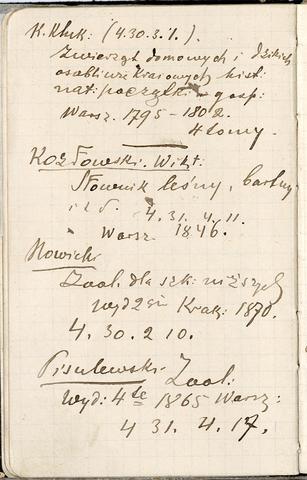 K. Kluk: (4.30.3.1.).
Zwierząt domowych i dzikich
osobliwie kraiowych hist:
nat: początki i gosp:
Warsz. 1795 - 1802.
4 tomy.
Kozłowski. Wikt.
Słownik leśny, bartny
i t d. 4. 31. 4. 11.
Warsz 1846.
Nowicki
Zool. dla szk: niższych
wyd 2gie Krak: 1870.
4. 30. 2 10.
Pisulewski Zool:
Wyd: 4te 1865 Warsz:
4 31. 4. 17.